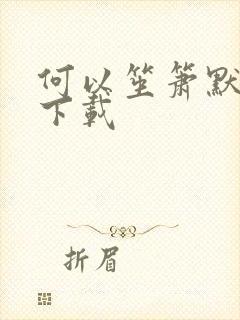 何以笙箫默
下载
折眉